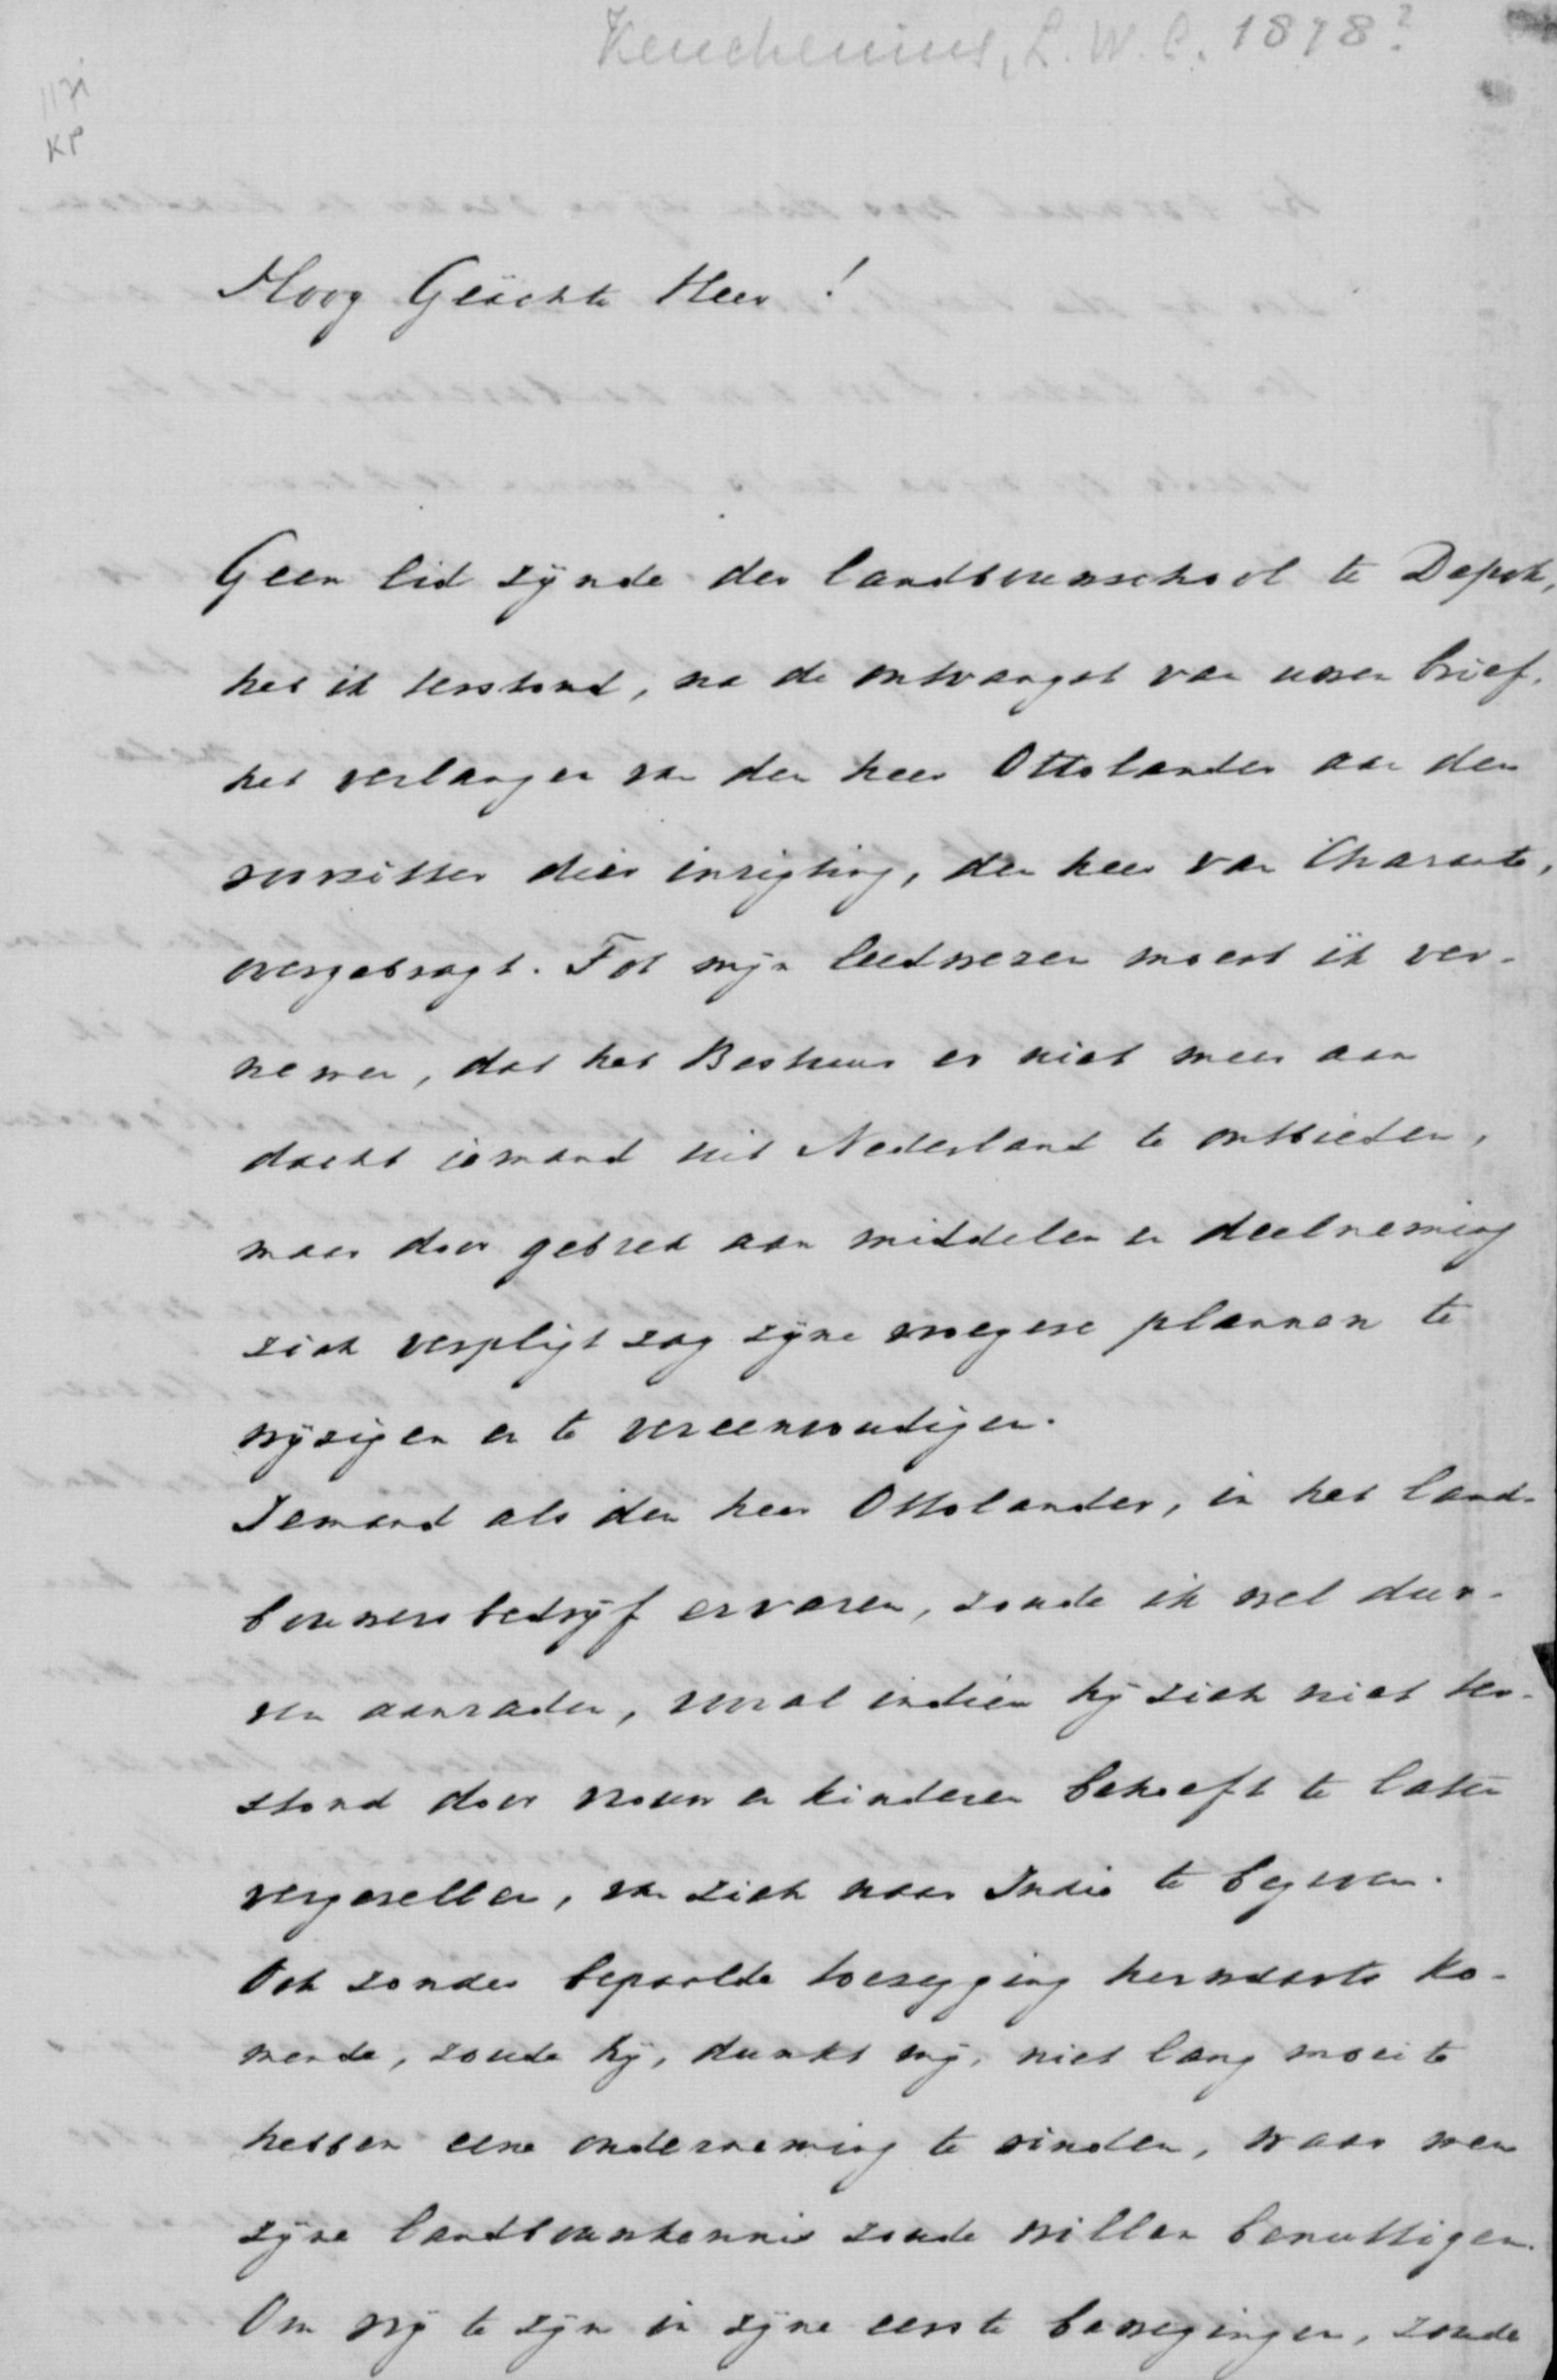 Keuchenius, L. W. C. 1878?
1171
KP
Hoog Geächte Heer!
Geen lid zijnde der landbouwschool te Depok,
heb ik terstond, na de ontvangst van uwen brief,
het verlangen van den heer Ottolander aan den
voorzitter dier inrigting, den heer van Charante,
overgebragt. Tot mijn leedwezen moest ik ver-
nemen, dat het Bestuur er niet meer aan
dacht iemand uit Nederland te ontbieden,
maar door gebrek aan middelen en deelneming
zich verpligt zag zijne vroegere plannen te
wijzigen en te vereenvoudigen.
Iemand als den heer Ottolander, in het land-
bouwersbedrijf ervaren, zoude ik wel dur-
ven aanraden, vooral indien hij zich niet ter-
stond door vrouw en kinderen behoeft te laten
vergezellen, om zich naar Indie te begeven.
Ook zonder bepaalde toezegging herwaarts ko-
mende, zoude hij, dunkt mij, niet lang moeite
hebben eene onderneming te vinden, waar men
zijne landbouwkennis zoude willen benuttigen.
Om vrij te zijn in zijne eerste bewegingen, zoude